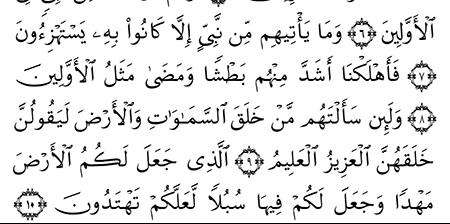 ٱلْأَوَّلِينَ ۝٦ وَمَا يَأْتِيهِم مِّن نَّبِىٍّ إِلَّا كَانُوا۟ بِهِۦ يَسْتَهْزِءُونَ
۝٧ فَأَهْلَكْنَآ أَشَدَّ مِنْهُم بَطْشًا وَمَضَىٰ مَثَلُ ٱلْأَوَّلِينَ
۝٨ وَلَئِن سَأَلْتَهُم مَّنْ خَلَقَ ٱلسَّمَـٰوَٰتِ وَٱلْأَرْضَ لَيَقُولُنَّ
خَلَقَهُنَّ ٱلْعَزِيزُ ٱلْعَلِيمُ ۝٩ ٱلَّذِى جَعَلَ لَكُمُ ٱلْأَرْضَ
مَهْدًا وَجَعَلَ لَكُمْ فِيهَا سُبُلًا لَّعَلَّكُمْ تَهْتَدُونَ ۝١٠